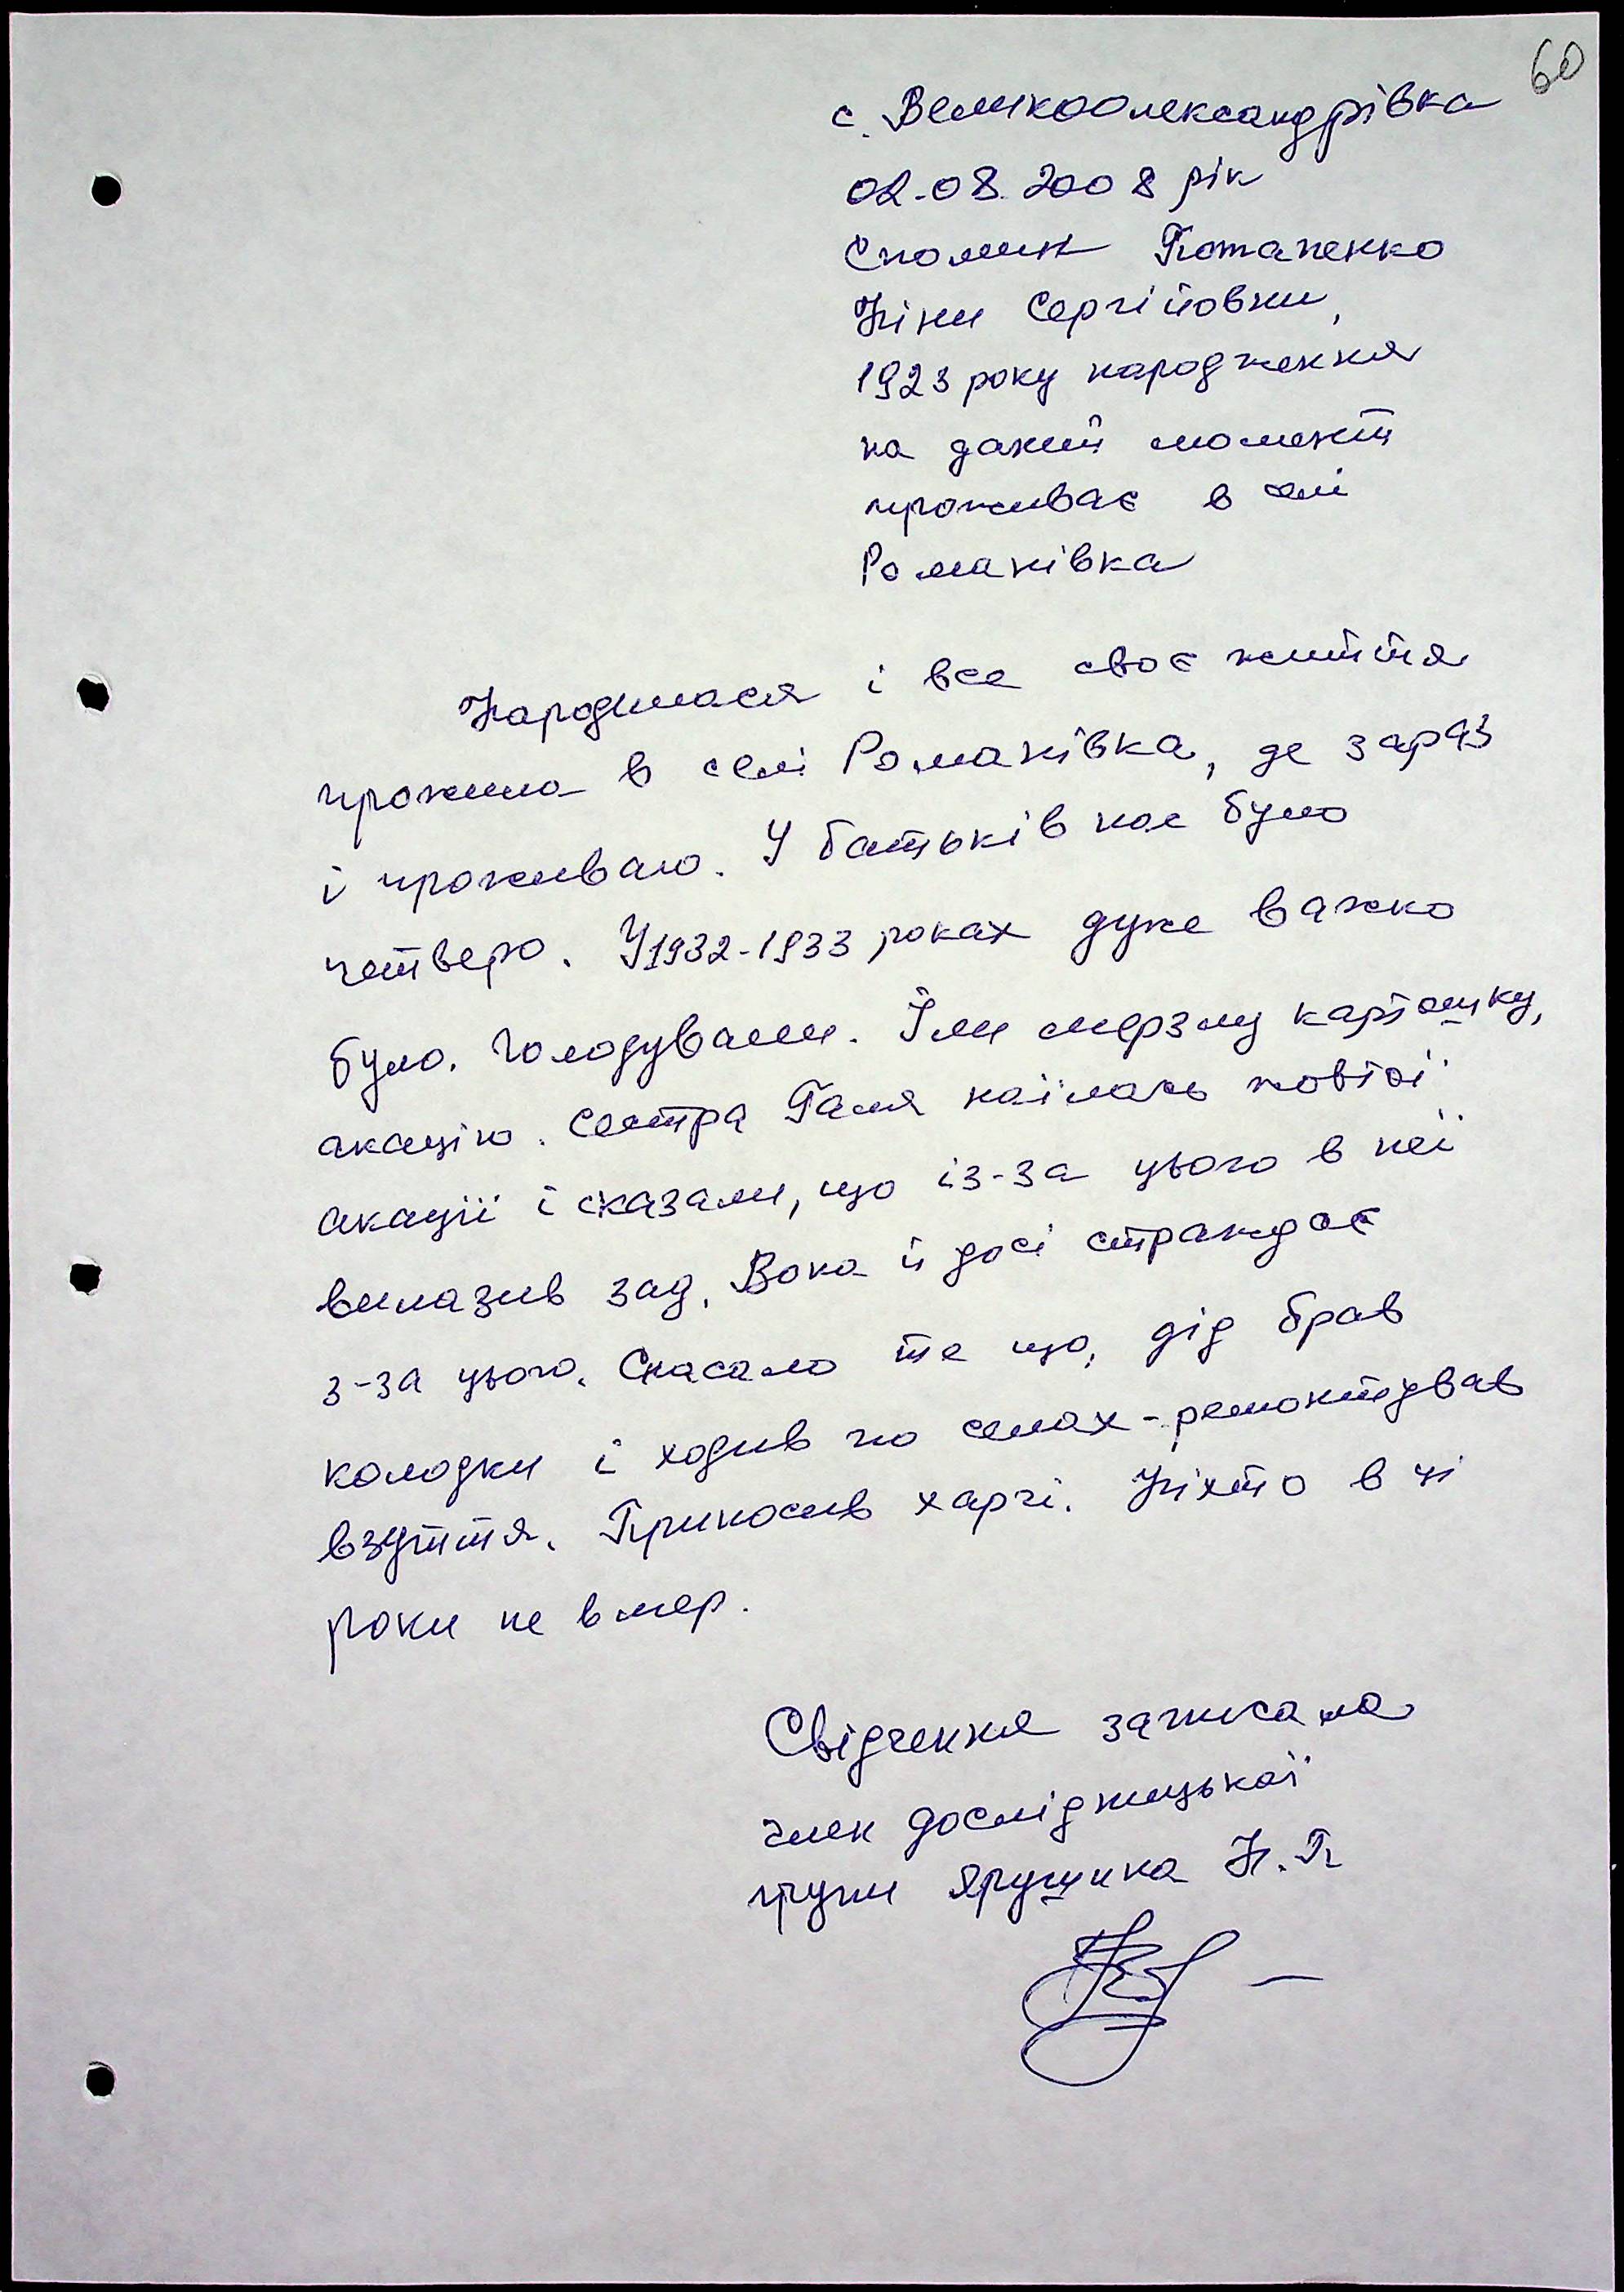 60
с. Великоолександрівка
02.08.2008 рік
Спомин Потапенко
Ніни Сергіївни,
1923 року народження
на даний момент
проживає в селі
Романівка
Народилася і все своє життя
прожила в селі Романівка, де зараз
і проживаю. У батьків нас було
четверо. У 1932-1933 роках дуже важко
було. Голодували. Їли мерзлу картошку,
акацію. Сестра Галя наїлась жовтої
акації і сказали, що із-за цього в неї
вилазив зад. Вона й досі страждає
з-за цього. Спасало те що, дід брав
колодки і ходив по селах - ремонтував
взуття. Приносив харчі. Ніхто в ці
роки не вмер.
Свідчення записала
член дослідницької
групи Н.П